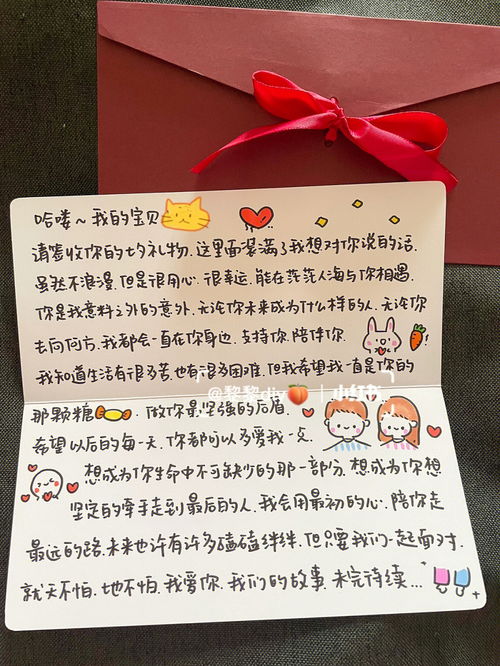 哈喽~我的宝贝
请签收你的七夕礼物.这里面装满了我想对你说的话.
虽然不浪漫.但是很用心.很幸运.能在茫茫人海与你相遇.
你是我意料之外的意外.无论你未来成为什么样的人.无论你
去向何方.我都会一直在你身边.支持你.陪伴你.
我知道生活有很多苦.也有很多困难.但我希望我一直是你的
@黎黎diy🍑 | 小红书
那颗糖.做你最坚强的后盾.
希望以后的每一天.你都可以多爱我一点.
想成为你生命中不可缺少的那一部分.想成为你想
坚定的牵手走到最后的人.我会用最初的心.陪你走
最远的路.未来也许有许多磕磕绊绊.但只要我们一起面对.
就天不怕.地不怕.我爱你.我们的故事.未完待续...